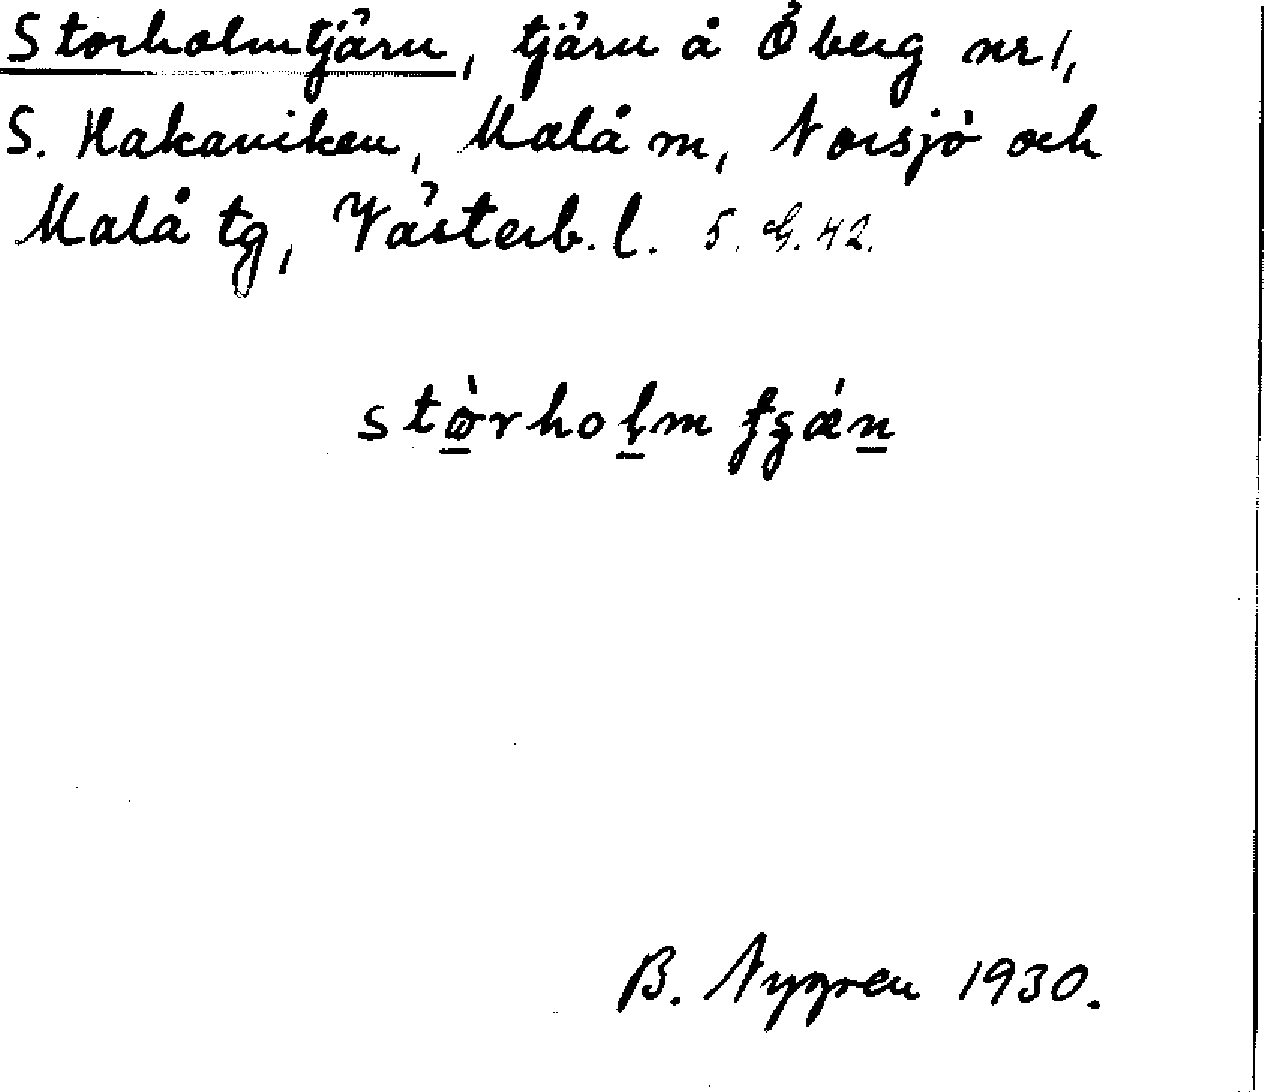 Storholmtjärn, tjärn å Öberg nr 1,
S. Hakaviken, Malå m, Norsjö och
Malå tg, Västerb. l. 5. G. 42.
stòrholm tʃǽn
B. Nygren 1930.